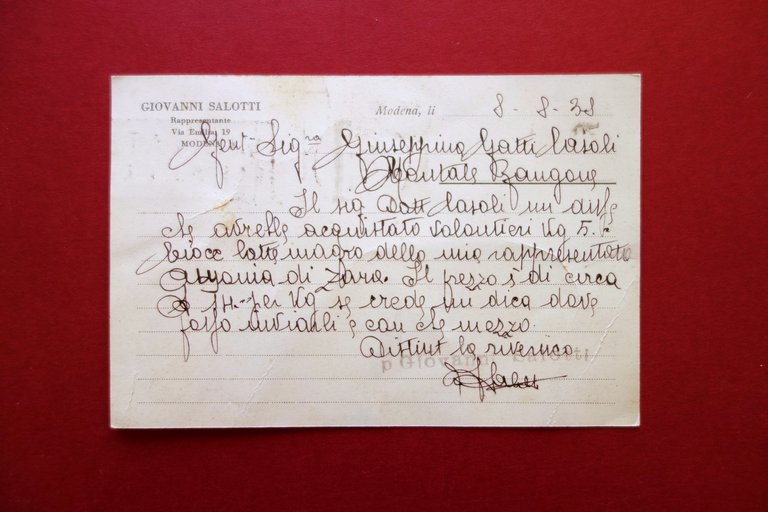 GIOVANNI SALOTTI
Rappresentante
Via Emilia, 19
MODENA
Modena, li 8-8-38
Gent Sig ra Giuseppina Gatti Casoli
Montale Rangone
Il sig Dott Casoli mi disse
che avrebbe acquistato volontieri Kg 5
latte magro della mia rappresentata
di Zara. Il prezzo è di circa
per Kg se crede mi dica dove
posso inviarli e con che mezzo.
Distint la riverisco
p Giovanni Salotti